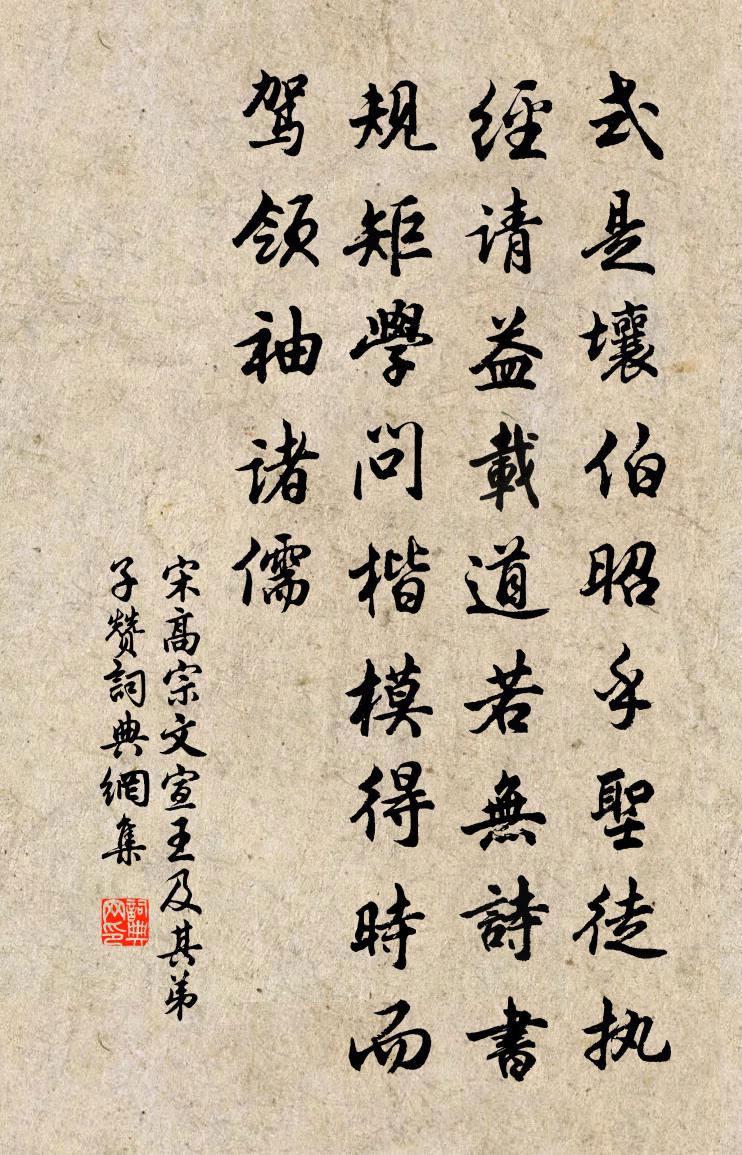 式是壤伯昭乎聖徒执
經请益載道若無詩書
规矩學问楷模得時而
驾领袖诸儒
宋高宗文宣王及其弟
子赞詞典網集
詞典網印